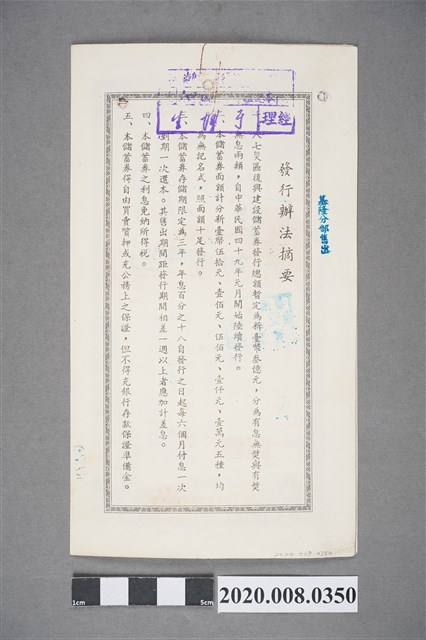 基隆分部售出
發行辦法摘要
八七災區復興建設儲蓄券發行總額暫定為新臺幣叁億元，分為有息無獎與有獎
無息兩類，自中華民國四十九年元月開始陸續發行。
本儲蓄券面額計分新臺幣伍拾元、壹佰元、伍佰元、壹仟元、壹萬元五種，均
為無記名式，照面額十足發行。
本儲蓄券存儲期限定為三年，年息百分之十八自發行之日起每六個月付息一次
到期一次還本。其售出期間距發行期間相差一週以上者應加計差息。
四、本儲蓄券之利息免納所得稅。
五、本儲蓄券得自由買賣質押或充公務上之保證，但不得充銀行存款保證準備金。
經理
1cm
5cm
2020.008.0350